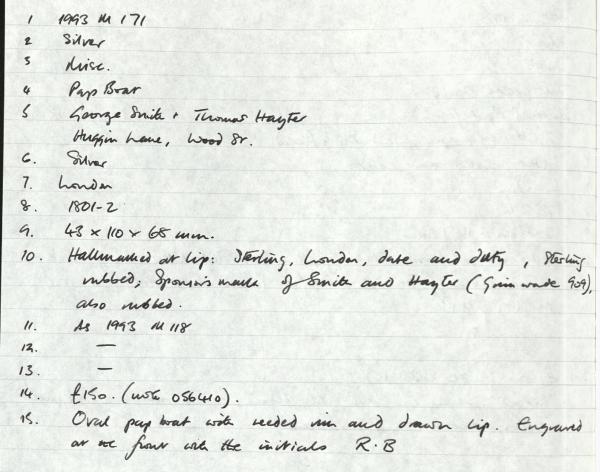 1 1993 M 171
2 Silver
3 Misc.
4 Pap Boat
5 George Smith + Thomas Hayter
Huggin Lane, Wood St.
6. Silver
7. London
8. 1801-2
9. 43 x 110 x 68 mm.
10. Hallmarked at lip: Sterling, London, date and duty, Sterling
rubbed; Sponsor's mark of Smith and Hayter (Grimwade 909),
also rubbed.
11. As 1993 M 118
12. —
13. —
14. £150. (inv 056410).
15. Oval pap boat with reeded rim and drawn lip. Engraved
at the front with the initials R.B